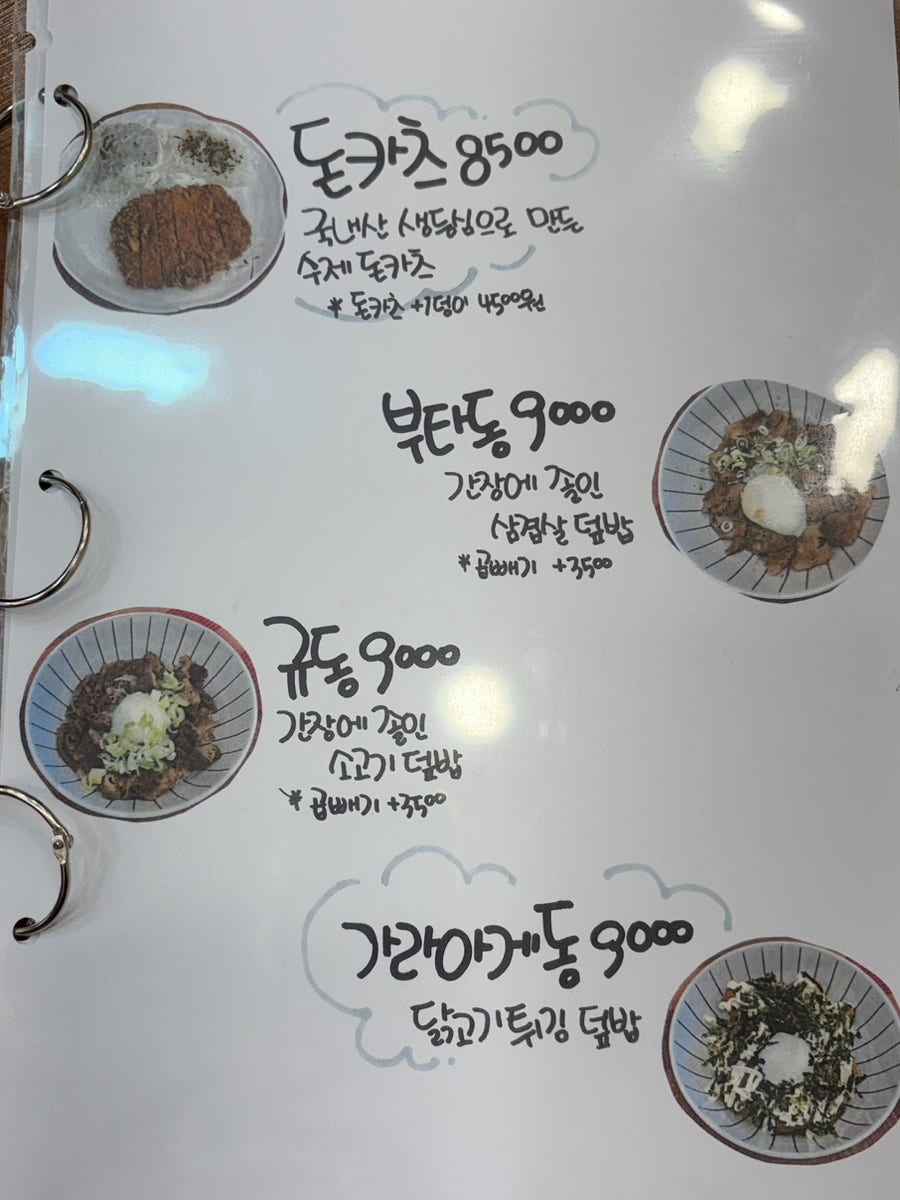 돈카츠 8500
국내산 생등심으로 만든
수제 돈카츠
* 돈카츠 +1덩이 4500원
부타동 9000
간장에 졸인
삼겹살 덮밥
* 곱빼기 +3500
규동 9000
간장에 졸인
소고기 덮밥
* 곱빼기 +3500
가라아게동 9000
닭고기튀김 덮밥